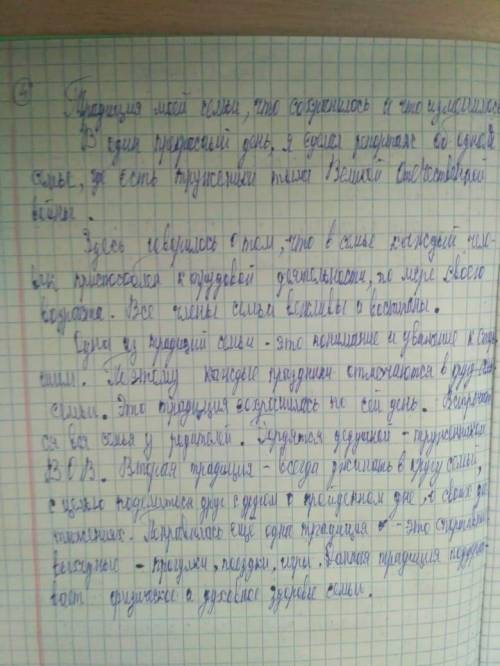 4
Традиция моей семьи, что сохранилось и что изменилось
В один прекрасный день, я сделал репортаж об одной
семье, где есть труженики тыла Великой Отечественной
войны.
Здесь говорилось о том, что в семье каждый чело-
век приспособлен к трудовой деятельности, по мере своего
возраста. Все члены семьи вежливы и воспитаны.
Одна из традиций семьи - это понимание и уважение к стар-
шим. Поэтому каждые праздники отмечаются в кругу
семьи. Эта традиция сохранилась по сей день. Встречает-
ся вся семья у родителей. Гордятся дедушкой - тружеником
ВОВ. Вторая традиция - всегда ужинать в кругу семьи,
с целью поделиться друг с другом о пройденном дне, о своих дос-
тижениях. Понравилась ещё одна традиция - это спортивные
выходные - прогулки, поездки, игры. Данная традиция поддержи-
вает физическое и духовное здоровье семьи.